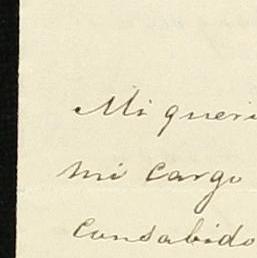 Mi queri
mi cargo
consabido